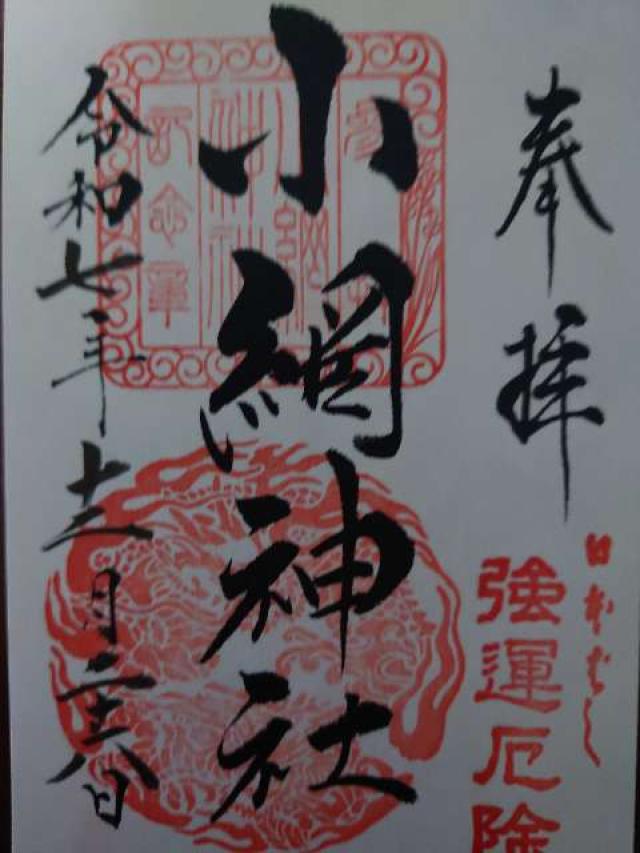 奉拝
日本ばし
強運厄除
小網神社
令和七年十二月二十八日